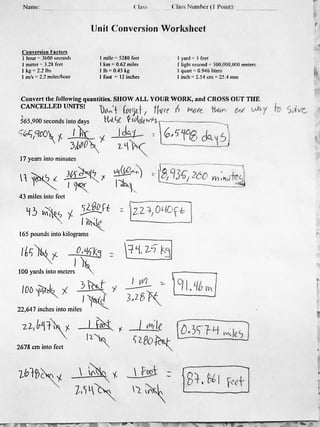 Name: Class Class Number (1 Point):
Unit Conversion Worksheet
Conversion Factors
1 hour = 3600 seconds 1 mile = 5280 feet 1 yard = 3 feet
1 meter = 3.28 feet 1 km = 0.62 miles 1 light second = 300,000,000 meters
1 kg = 2.2 lbs 1 lb = 0.45 kg 1 quart = 0.946 liters
1 m/s = 2.2 miles/hour 1 foot = 12 inches 1 inch = 2.54 cm = 25.4 mm
Convert the following quantities. SHOW ALL YOUR WORK, and CROSS OUT THE
CANCELLED UNITS! Don't forget, there is more than one way to solve
these problems.
565,900 seconds into days
565,900 s x 1 hr / 3,600 s x 1 day / 24 hr = 6.5498 days
17 years into minutes
17 years x 365 days / 1 year x / 1 day = 8,935,200 minutes
43 miles into feet
43 miles x 5280 ft / 1 mile = 227,040 ft
165 pounds into kilograms
165 lbs x 0.45 kg / 1 lb = 74.25 kg
100 yards into meters
100 yards x 3 feet / 1 yard x 1 m / 3.28 ft = 91.46 m
22,647 inches into miles
22,647 in x 1 foot / 12 in x 1 mile / 5280 feet = 0.3574 miles
2678 cm into feet
2678 cm x 1 inch / 2.54 cm x 1 foot / 12 inch = 87.861 feet